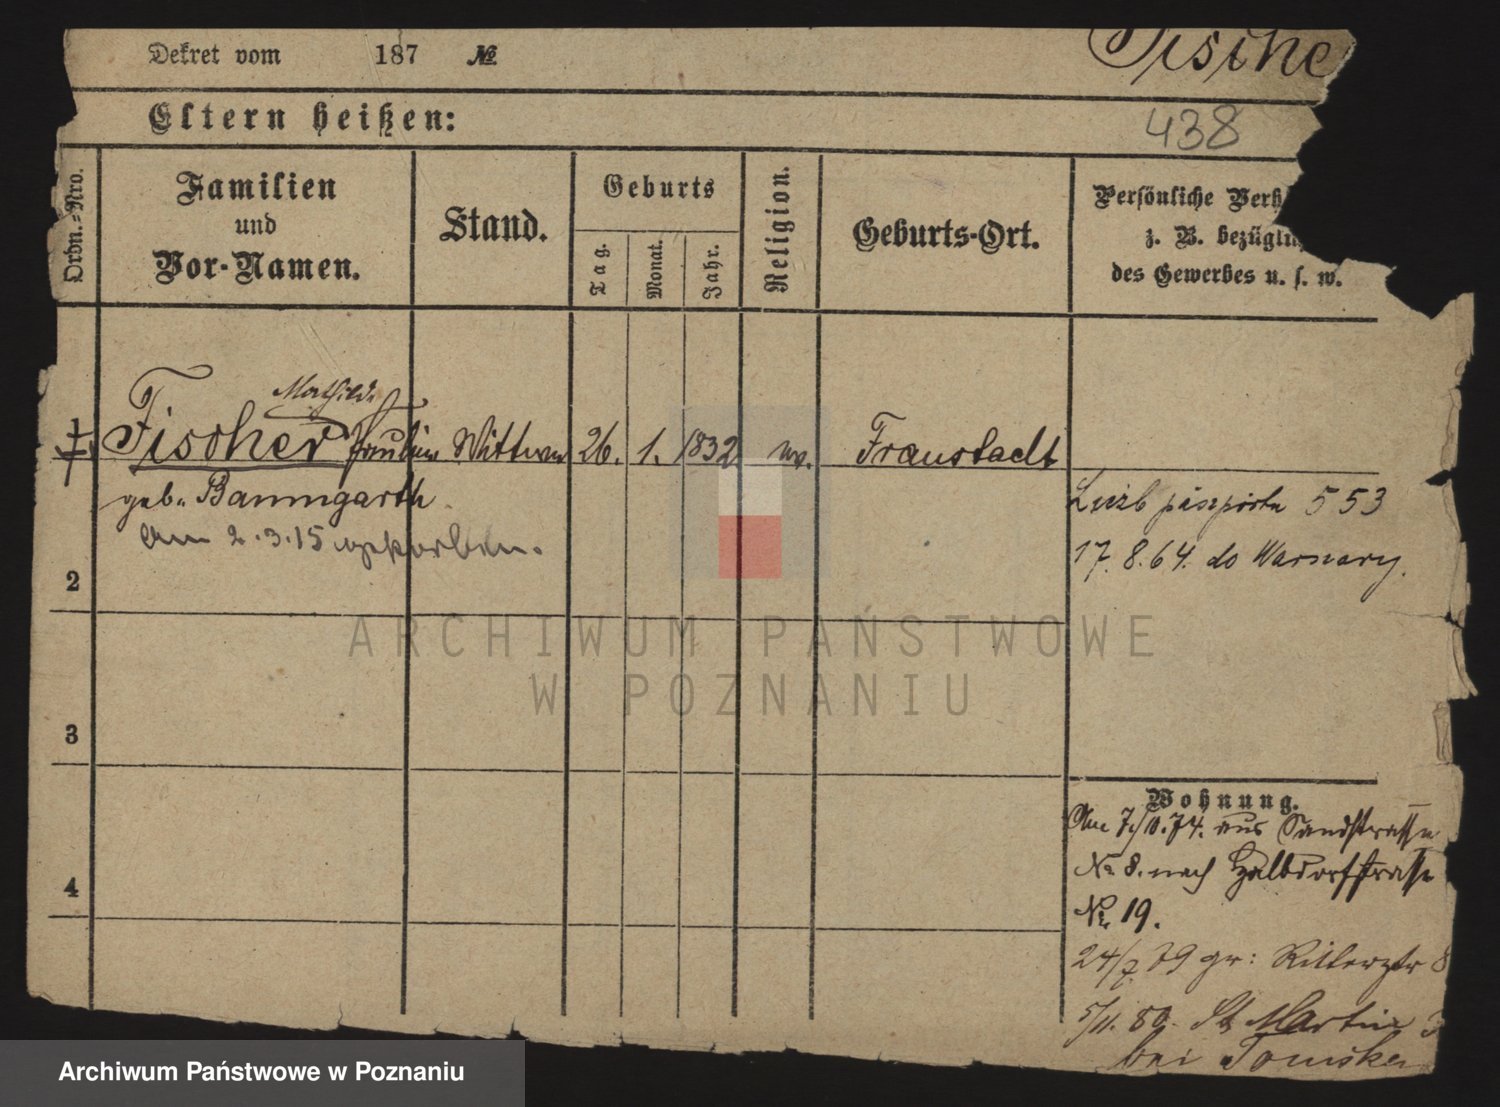 Dekret vom 187 № Fische
Eltern heißen:
438
Ordn.-Nro.
Familien
und
Vor-Namen.
Stand.
Geburts
Tag.
Monat.
Jahr.
Religion.
Geburts-Ort.
Persönliche Verh
z. B. bezügli
des Gewerbes u. s. w.
Mathilde
1 Fischer Pauline Wittwe 26. 1. 1832 ev. Fraustadt
geb. Baumgarth
am 2.3.15 gestorben.
553
17.8.64. do
2
3
4
Wohnung.
Am 7/10.74. aus Sandstrasse
No 8. nach Halbdorfstrasse
No 19.
24/7 79 gr: Ritterstr 8
5/11. 80. St Martin
bei Tomska
ARCHIWUM PAŃSTWOWE
W POZNANIU
Archiwum Państwowe w Poznaniu